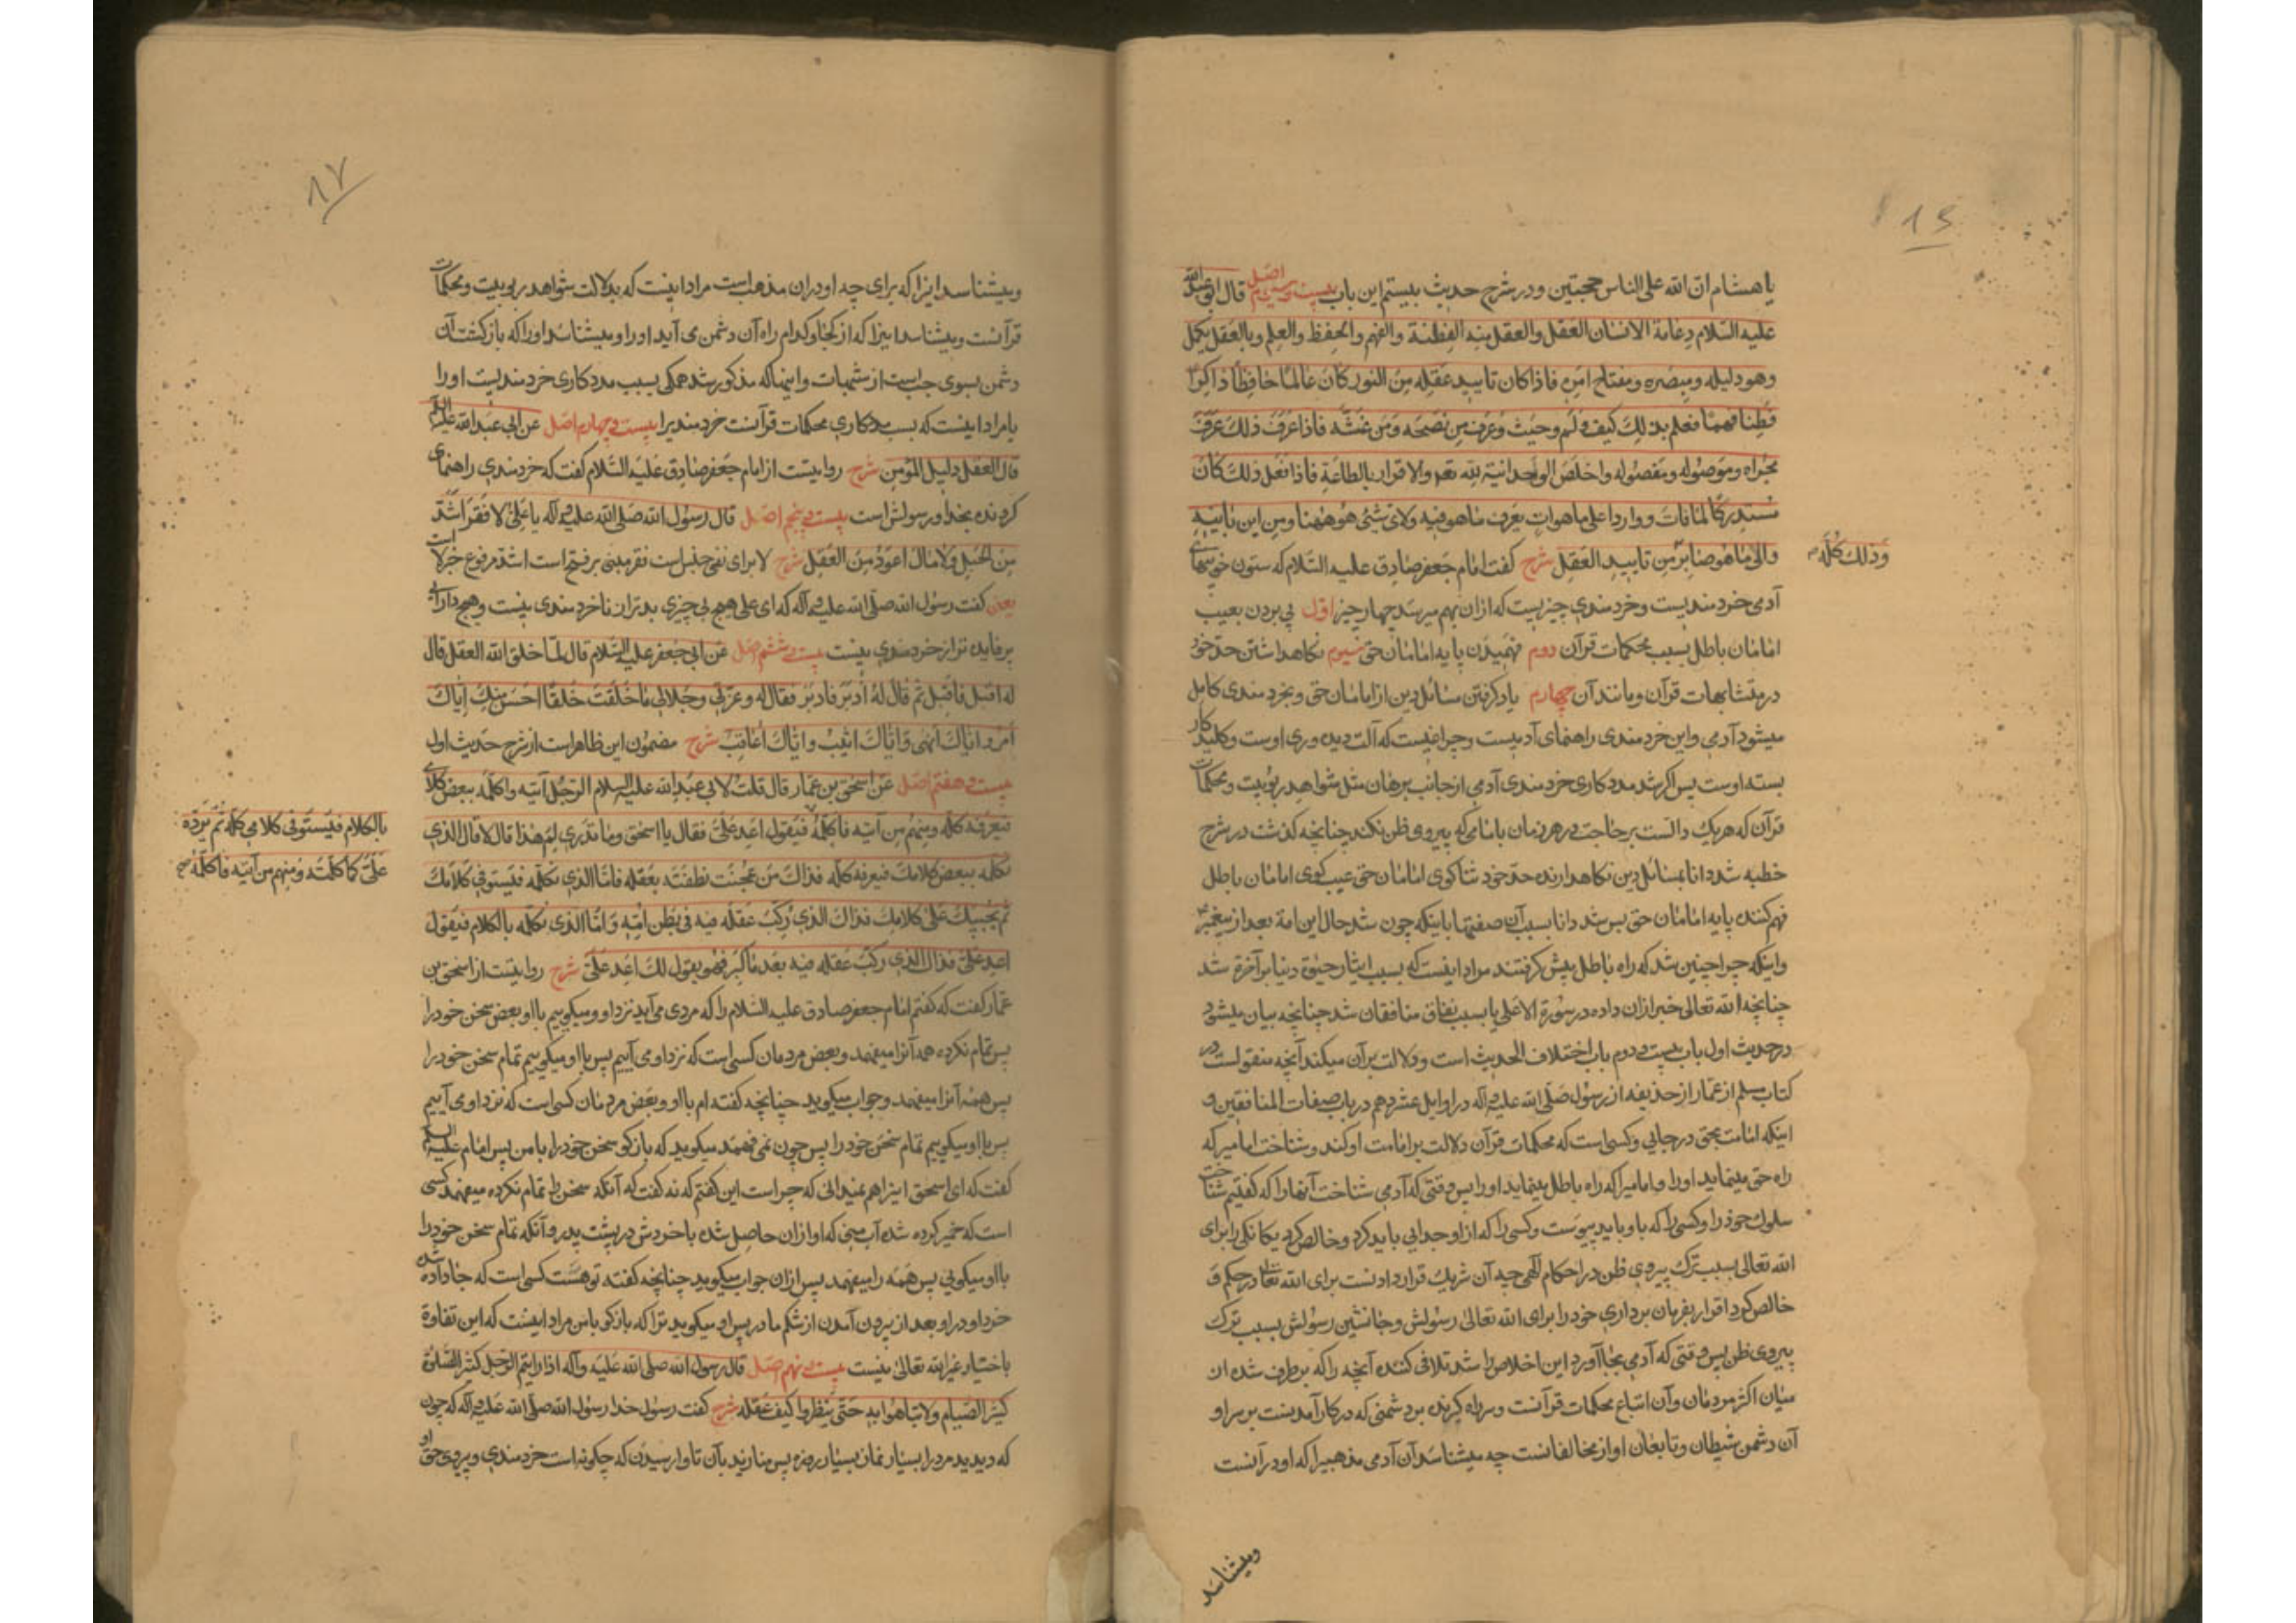 ۸۶
یا هشام ان الله علی الناس حجتین و در شرح حدیث بیستم این باب بیست و سیم اصل قال ابو عبدالله
علیه السلام دعامة الانسان العقل والعقل منه الفطنة والفهم والحفظ والعلم وبالعقل یکمل
وهو دلیله ومبصره ومفتاح امره فاذا کان تایید عقله من النور کان عالما حافظا ذاکرا
فطنا فهما فعلم بذلک کیف ولم وحیث وعرف من نصحه ومن غشه فاذا عرف ذلک عرف
مجراه وموصوله ومفصوله واخلص الوحدانیة لله تعم والاقرار بالطاعة فاذا فعل ذلک کان
مستدرکا لما فات و واردا علی ما هو آت یعرف ما هو فیه ولای شیئ هو ههنا ومن این یاتیه
والی ما هو صایر من تایید العقل شرح گفت امام جعفر صادق علیه السلام که ستون خوبیهای
وذلک کله
آدمی خردمندیست وخردمندی چیزیست که ازان بهم میرسد چهار چیز اول پی بردن بعیب
امامان باطل بسبب محکمات قرآن دوم فهمیدن پایه امامان حق سیوم نگاهداشتن حد خود
در متشابهات قرآن ومانند آن چهارم یاد گرفتن مسائل دین از امامان حق وبخردمندی کامل
میشود آدمی واین خردمندی راهنمای آدمیست وچراغیست که آلت دیده وری اوست وکلید کار
بسته اوست پس اگر شد مددکاری خردمندی آدمی از جانب برهان مثل شواهد ربوبیت ومحکمات
قرآن که هریک دالست بر حاجت در هر زمان بامامی که پیروی ظن نکند چنانچه گذشت در شرح
خطبه شد دانا بمسائل دین نگاهدارنده حد خود ثناگوی امامان حق عیب گوی امامان باطل
فهم کننده پایه امامان حق پس شد دانا بسبب آن صفتها باینکه چون شد حال این امة بعد از پیغمبر
واینکه چرا چنین شد که راه باطل پیش گرفتند مراد اینست که بسبب ایثار حیوة دنیا بر آخرة شد
چنانچه الله تعالی خبر ازان داده در سورة الاعلی یا بسبب نفاق منافقان شد چنانچه بیان میشود
در حدیث اول باب بیست و دوم باب اختلاف الحدیث است ودلالت بر آن میکند آنچه منقولست در
کتاب مسلم از عمار از حذیفه از رسول صلی الله علیه وآله در اوایل عشر دهم در باب صفات المنافقین و
اینکه امامت بحق در جایی وکسی است که محکمات قرآن دلالت بر امامت او کند وشناخت امامیرکه
راه حق مینماید اورا وامامیرا که راه باطل مینماید اورا پس وقتی که آدمی شناخت آنها را که گفتیم شناخت
سلوک خود را وکسی را که باو باید پیوست وکسی را که از او جدایی باید کرد وخالص کرد یگانگی را برای
الله تعالی بسبب ترک پیروی ظن در احکام الهی چه آن شریک قرار دادنست برای الله تعالی در حکم و
خالص کرد اقرار بفرمان برداری خود را برای الله تعالی رسولش وجانشین رسولش بسبب ترک
پیروی ظن پس وقتی که آدمی بجا آورد این اخلاص را شد تلافی کننده آنچه را که برطرف شده از
میان اکثر مردمان وآن اتباع محکمات قرآنست وسر راه گیرنده بر دشمنی که در کار آمدنست بر سر او
آن دشمن شیطان وتابعان او از مخالفانست چه میشناسد آن آدمی مذهبیرا که او در آنست
ومیشناسد
۸۷
ومیشناسد اینرا که برای چه او دران مذهب است مراد اینست که بدلالت شواهد ربوبیت ومحکمات
قرآنست ومیشناسد اینرا که از کجا وکدام راه آن دشمن می آید اورا ومیشناسد اورا که بازگشت آن
دشمن بسوی چه است از شبهات واینها که مذکور شد همگی بسبب مددکاری خردمندیست اورا
یا مراد اینست که بسبب مددکاری محکمات قرآنست خردمندیرا بیست و چهارم اصل عن ابی عبدالله علیه السلام
قال العقل دلیل المؤمن شرح روایتست از امام جعفر صادق علیه السلام گفت که خردمندی راهنمای
گرونده بخدا و رسولش است بیست و پنجم اصل قال رسول الله صلی الله علیه وآله یا علی لا فقر اشد
من الجهل ولا مال اعود من العقل شرح لا برای نفی جنس است فقر مبنی بر فتح است اشد مرفوع خبر لا است
یعنی گفت رسول الله صلی الله علیه وآله که ای علی هیچ بی چیزی بدتر از ناخردمندی نیست وهیچ دارایی
پرفایده تر از خردمندی نیست بیست و ششم اصل عن ابی جعفر علیه السلام قال لما خلق الله العقل قال
له اقبل فاقبل ثم قال له ادبر فادبر فقال له وعزتی وجلالی ما خلقت خلقا احسن منک ایاک
امر وایاک انهی وایاک اثیب وایاک اعاقب شرح مضمون این ظاهر است از شرح حدیث اول
بیست و هفتم اصل عن اسحق بن عمار قال قلت لابی عبدالله علیه السلام الرجل آتیه واکلمه ببعض کلامی
فیعرفه کله ومنهم من آتیه فاکلمه فیقول اعد علی فقال یا اسحق وما تدری لم هذا قال لا قال الذی
بالکلام فیستوفی کلامی کله ثم یرده
علی کما کلمته ومنهم من آتیه فاکلمه صح
تکلمه ببعض کلامک فیعرفه کله فذاک من عجنت نطفته بعقله فاما الذی تکلمه فیستوفی کلامک
ثم یجیبک علی کلامک فذاک الذی رکب عقله فیه فی بطن امه واما الذی تکلمه بالکلام فیقول
اعد علی فذاک الذی رکب عقله فیه بعد ما کبر فهو یقول لک اعد علی شرح روایتست از اسحق بن
عمار گفت که گفتم امام جعفر صادق علیه السلام را که مردی می آید نزد او ومیگوییم بااو بعض سخن خود را
پس تمام نکرده همه آنرا میفهمد وبعض مردمان کسی است که نزد او می آییم پس بااو میگوییم تمام سخن خود را
پس همه آنرا میفهمد وجواب میگوید چنانچه گفته ام بااو وبعض مردمان کسی است که نزد او می آییم
پس بااو میگوییم تمام سخن خود را پس چون نمی فهمد میگوید که بازگو سخن خود را با من پس امام علیه السلام
گفت که ای اسحق اینرا هم نمیدانی که چرا است این گفتم که نه گفت که آنکه سخن را تمام نکرده میفهمد کسی
است که خمیر کرده شده آب منی که او ازان حاصل شده با خردش در پشت پدر وآنکه تمام سخن خود را
بااو میگویی پس همه را میفهمد پس ازان جواب میگوید چنانچه گفته تو هست کسی است که جا داده شده
خرد او در او بعد از بیرون آمدن از شکم مادر پس او میگوید ترا که بازگو بامن مراد اینست که این تفاوة
باختیار غیر الله تعالی نیست بیست و نهم اصل قال رسول الله صلی الله علیه وآله اذا رایتم الرجل کثیر الصلوة
کثیر الصیام فلا تباهوا به حتی تنظروا کیف عقله شرح گفت رسول خدا رسول الله صلی الله علیه وآله که چون
که دیدید مرد را بسیار نماز بسیار روزه پس منازید بآن تا وارسیدن که چگونه است خردمندی وپیروی حق او